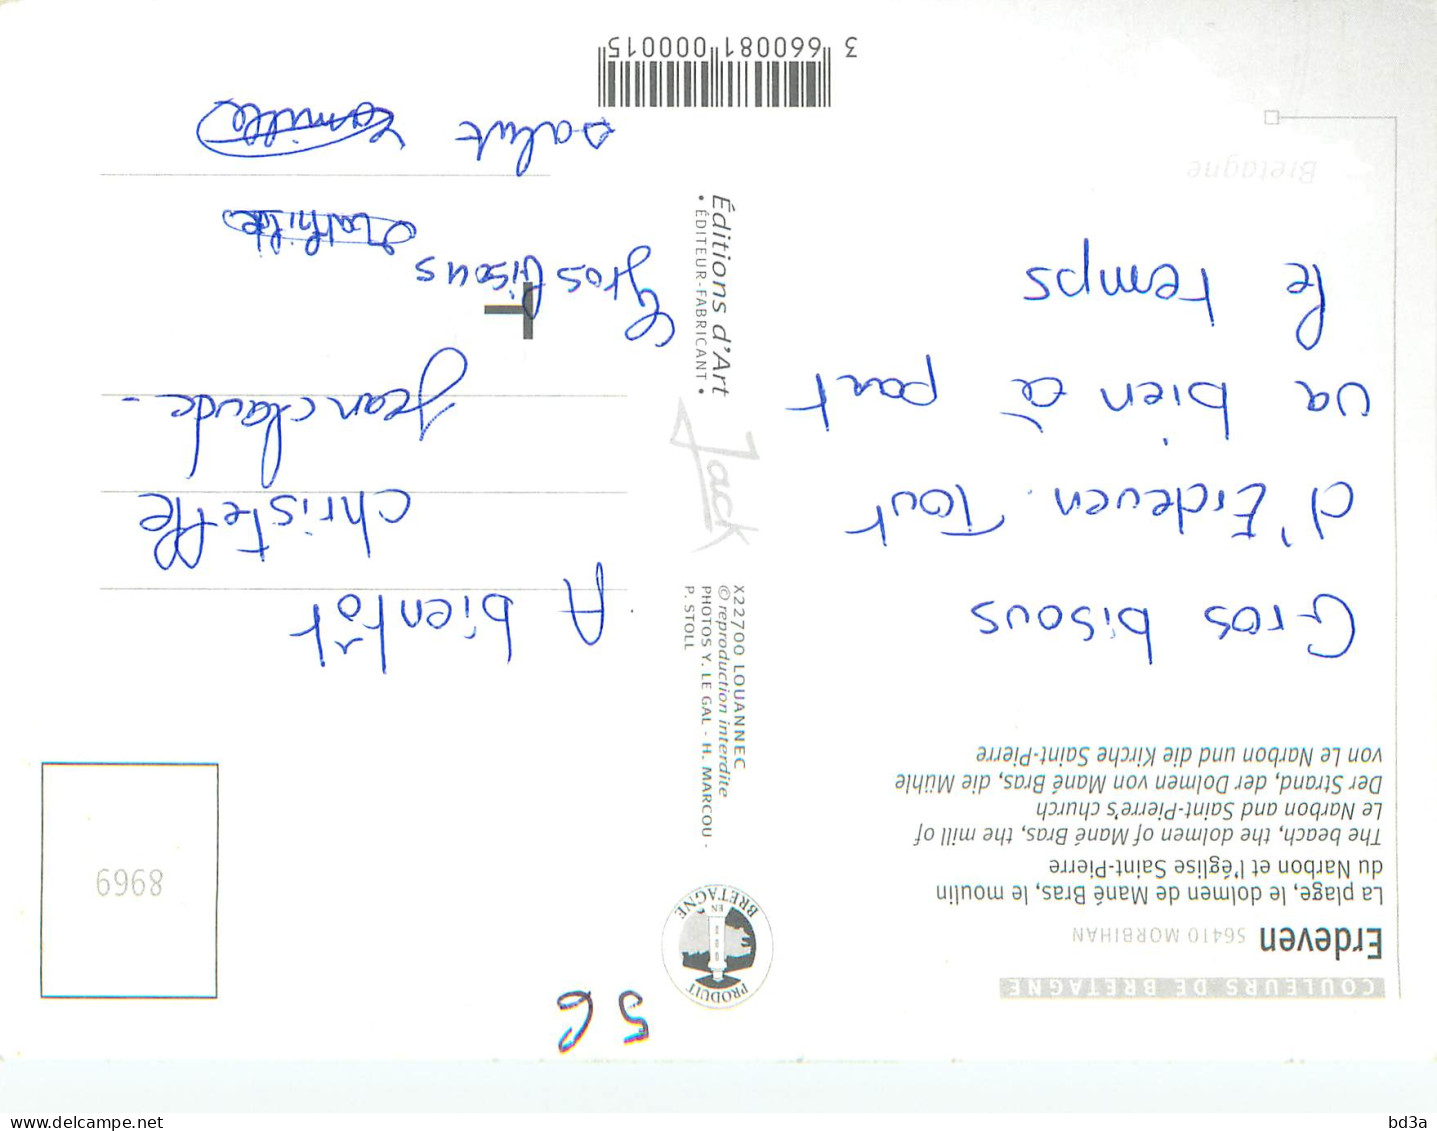 COULEURS DE BRETAGNE
Erdeven 56410 MORBIHAN
La plage, le dolmen de Mané Bras, le moulin
du Narbon et l'église Saint-Pierre
The beach, the dolmen of Mané Bras, the mill of
Le Narbon and Saint-Pierre's church
Der Strand, der Dolmen von Mané Bras, die Mühle
von Le Narbon und die Kirche Saint-Pierre
Gros bisous
d'Erdeven. Tout
va bien à part
le temps
Bretagne
56
PRODUIT
EN
BRETAGNE
X22700 LOUANNEC
© reproduction interdite
PHOTOS Y. LE GAL - H. MARCOU -
P. STOLL
Jack
Éditions d'Art
• ÉDITEUR-FABRICANT •
8969
A bientôt
christelle
Jean claude -
Gros bisous
Mathilde
salut Camille
3 660081 000015
T
delcampe.net
bd3a